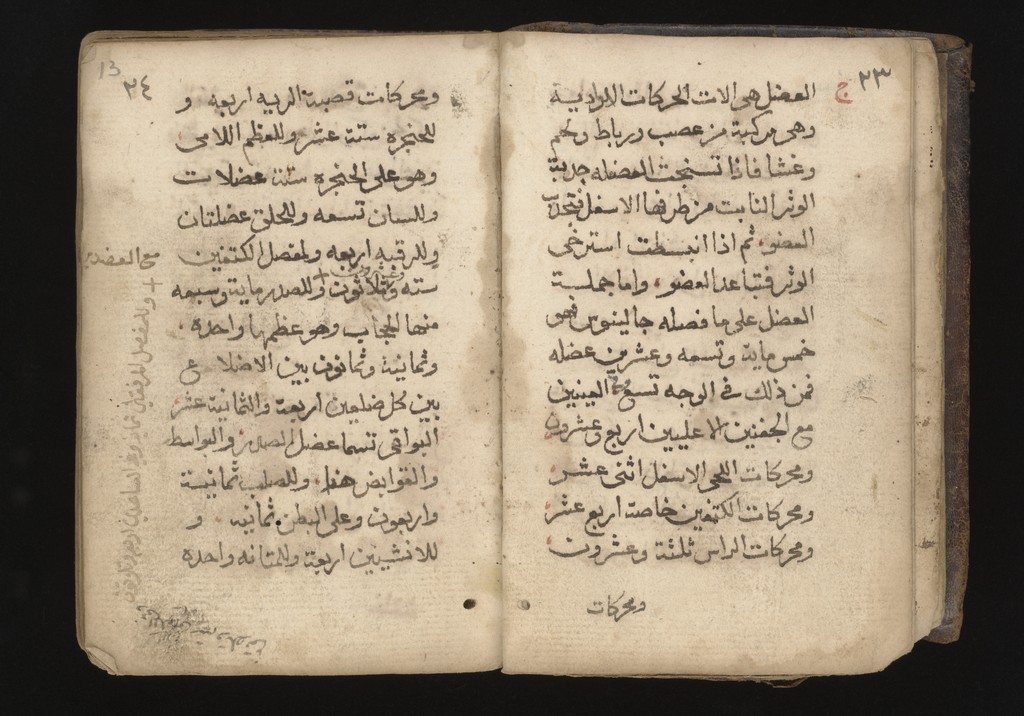 ٢٣
العضل هي الات الحركات الارادية
وهي مركبة من عصب ورباط ولحم
وغشا فاذا تسنجت العضله جذبت
الوتر النابت من طرفها الاسفل فتجذب
العضو ثم اذا انبسطت استرخى
الوتر فتباعد العضو واما جملة
العضل على ما فصله جالينوس فهو
خمس ماية وتسعه وعشرين عضله
فمن ذلك في الوجه تسع العينين
مع الجفنين الاعليين اربع وعشرون
ومحركات اللحى الاسفل اثنى عشر
ومحركات الكتفين خاصة اربع عشر
ومحركات الراس ثلثة وعشرون
ومحركات
13
٢٤
ومحركات قصبة الريه اربعه و
للحنجره ستة عشر وللعظم اللامى
وهو على الحنجره ستة عضلات
وللسان تسعه وللحلق عضلتان
وللرقبه اربعه ولمفصل الكتفين
سته وثلاثون وللصدر ماية وسبعه
منها الحجاب وهو عظمها واحده
وثمانية وثمانون بين الاضلاع
بين كل ضلعين اربعة والثمانية عشر
البواقى تسما عضل الصدر والبواسط
والقوابض هذا وللصلب ثمانية
واربعون وعلى البطن ثمانيه و
للانثيين اربعة وللمثانه واحده
مع العضدين